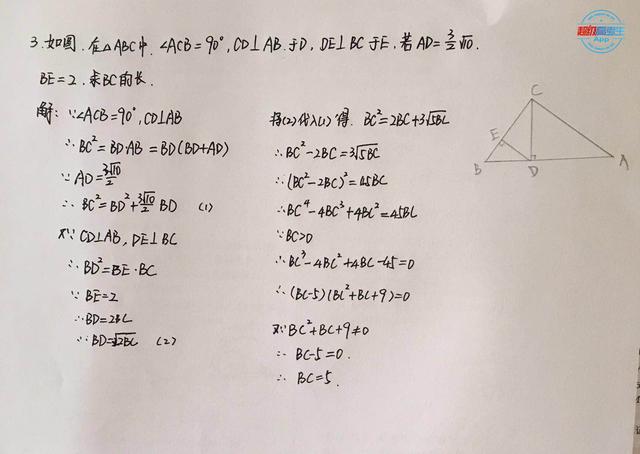 超级高考生
App
3. 如图. 在△ABC中. ∠ACB=90°, CD⊥AB 于D, DE⊥BC 于E, 若 AD=3/2√10.
BE=2. 求BC的长.
解: ∵∠ACB=90°, CD⊥AB
∴ BC²=BD·AB=BD(BD+AD)
∵ AD=3√10/2
∴ BC²=BD²+3√10/2 BD (1)
又∵ CD⊥AB, DE⊥BC
∴ BD²=BE·BC
∵ BE=2
∴BD=2BC
∵BD=√2BC (2)
将(2)代入(1)得. BC²=2BC+3√5BC
∴BC²-2BC=3√5BC
∴(BC²-2BC)²=45BC
∴BC⁴-4BC³+4BC²=45BC
∵BC>0
∴BC³-4BC²+4BC-45=0
∴(BC-5)(BC²+BC+9)=0
又∵BC²+BC+9≠0
∴ BC-5=0.
∴ BC=5.
C
E
B
D
A